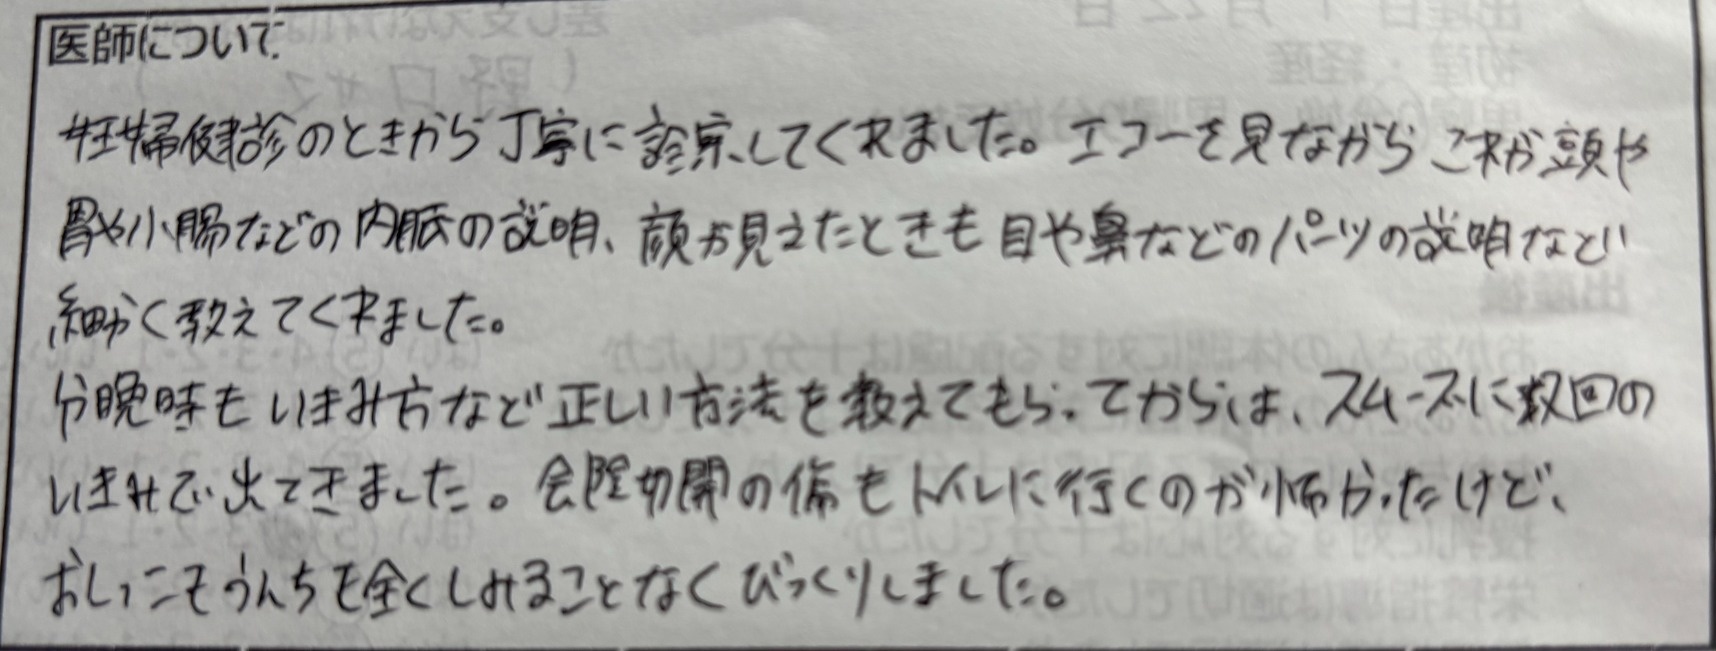 医師について
妊婦健診のときから丁寧に診察してくれました。エコーを見ながらこれが頭や
胃や小腸などの内臓の説明、顔が見えたときも目や鼻などのパーツの説明など
細かく教えてくれました。
分娩時もいきみ方など正しい方法を教えてもらってからは、スムーズに数回の
いきみで出てきました。会陰切開の傷もトイレに行くのが怖かったけど、
おしっこもうんちも全くしみることなくびっくりしました。